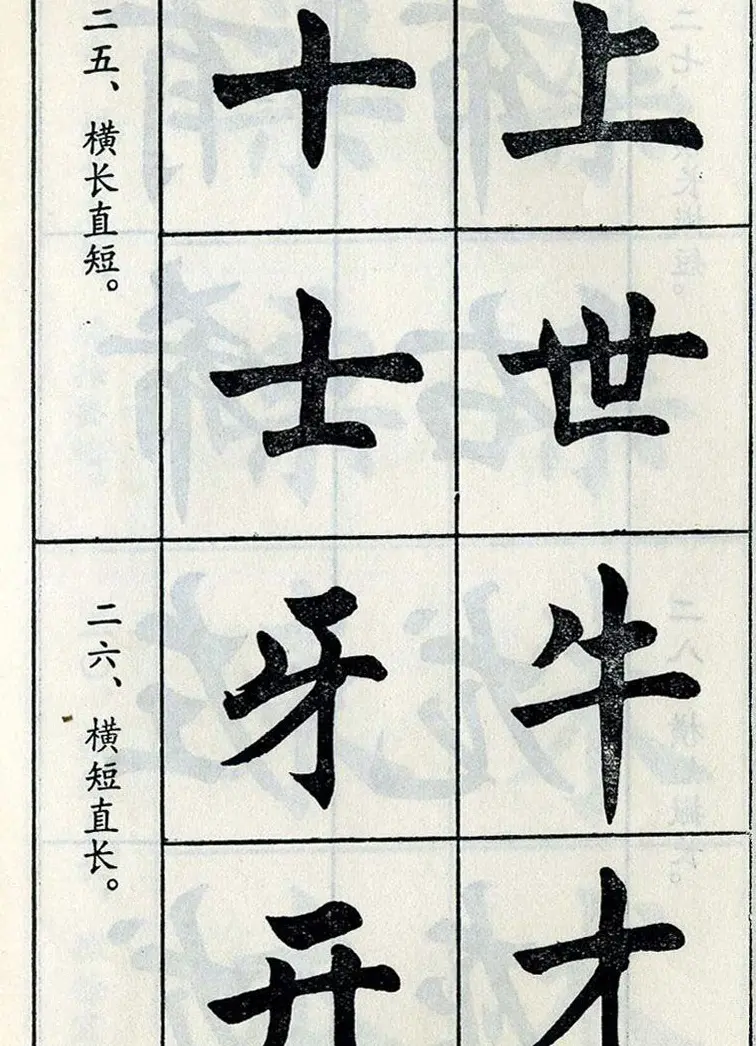 二五、横长直短。
十上
士世
二六、横短直长。
牙牛
开才